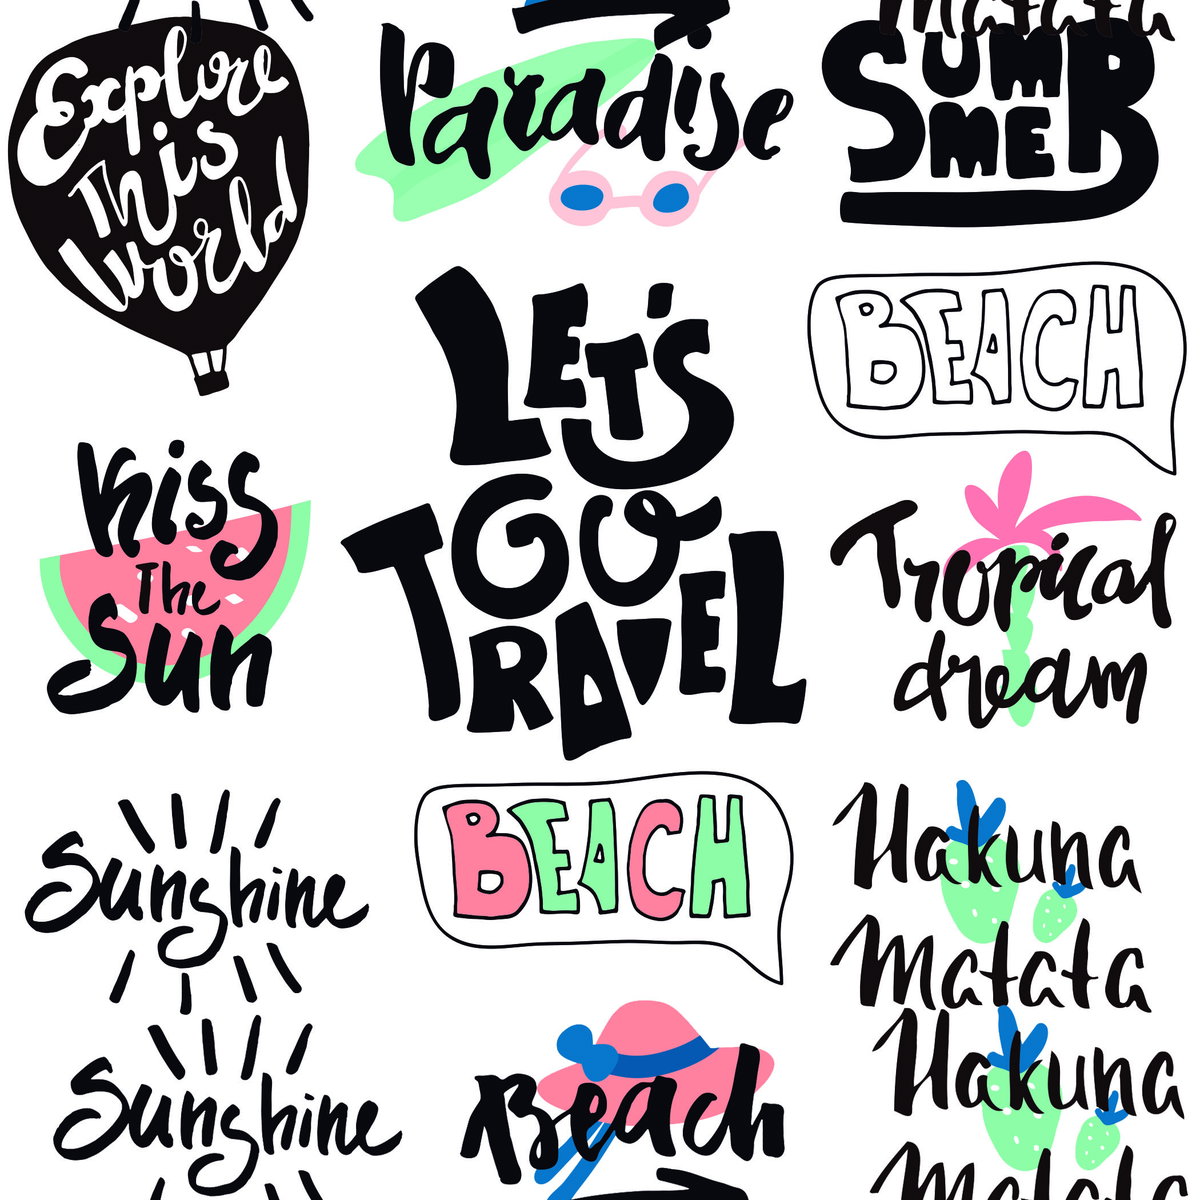 Explore
This
World
Paradise
Matata
SUM
MER
LET'S
GO
TRAVEL
BEACH
Kiss
The
Sun
Tropical
dream
Sunshine
BEACH
Hakuna
Matata
Sunshine
Beach
Hakuna
Matata